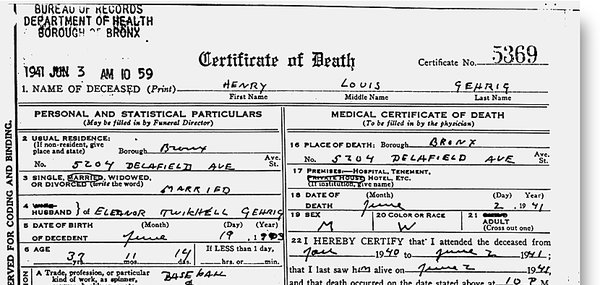 BUREAU OF RECORDS
DEPARTMENT OF HEALTH
BOROUGH OF BRONX
Certificate of Death
Certificate No. 5369
1941 JUN 3 AM 10 59
1. NAME OF DECEASED (Print) HENRY LOUIS GEHRIG
First Name Middle Name Last Name
PERSONAL AND STATISTICAL PARTICULARS
(May be filled in by Funeral Director)
2 USUAL RESIDENCE:
(If non-resident, give
place and state) Borough Bronx
No. 5204 DELAFIELD AVE Ave. St.
3 SINGLE, MARRIED, WIDOWED,
OR DIVORCED (write the word)
MARRIED
4 HUSBAND of ELEANOR TWICHELL GEHRIG
5 DATE OF BIRTH (Month) (Day) (Year)
OF DECEDENT June 19, 1903
6 AGE If LESS than 1 day,
37 yrs. 11 mos. 14 ds. hrs. or min.
A Trade, profession, or particular
kind of work, as spinner, BASEBALL
MEDICAL CERTIFICATE OF DEATH
(To be filled in by the physician)
16 PLACE OF DEATH: Borough BRONX
No. 5204 DELAFIELD AVE Ave. St.
17 PREMISES—HOSPITAL, TENEMENT,
PRIVATE HOUSE HOTEL, ETC.
(If institution, give name)
18 DATE OF (Month) (Day) (Year)
DEATH June 2, 1941
19 SEX 20 COLOR OR RACE 21 ADULT
M W (Cross out one)
22 I HEREBY CERTIFY that I attended the deceased
from Jan 1940 to June 2 1941;
that I last saw him alive on June 2 1941,
and that death occurred on the date stated above at 10 P M
RESERVED FOR CODING AND BINDING.